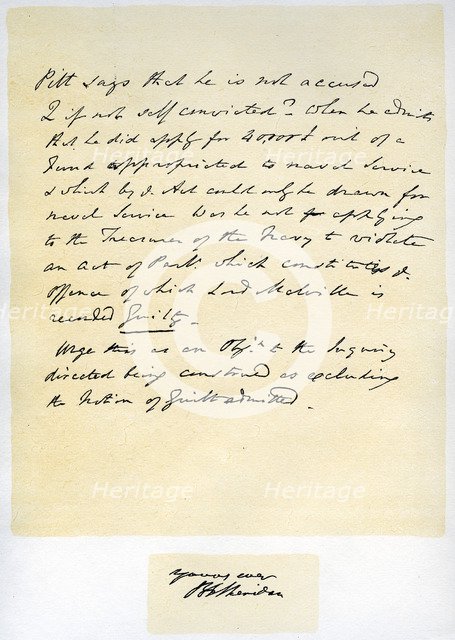 Pitt says that he is not accused
Q if not self convicted? When he admits
that he did apply for 40,000£ out of a
Fund appropriated to naval Service
& which by d. Act could only be drawn for
naval Service was he not applying
to the Treasurer of the Navy to violate
an act of Parlt. which constitutes d.
offence of which Lord Melville is
recorded Guilty.
Urge this as an Objn. to the Inquiry
directed being construed as excluding
the Notion of Guilt admitted.
yours ever
RB Sheridan
Heritage
Heritage
Heritage
Heritage
Heritage
Heritage